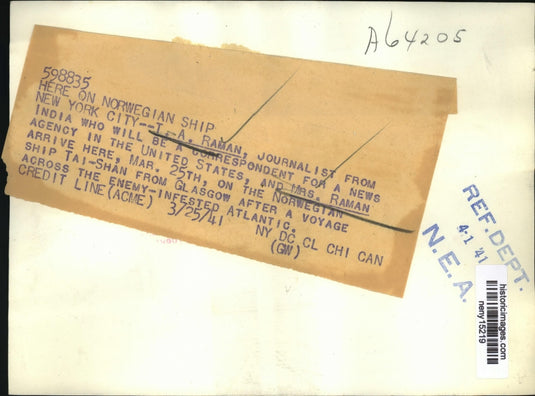 A64205
598835
HERE ON NORWEGIAN SHIP
NEW YORK CITY--T. A. RAMAN, JOURNALIST FROM
INDIA WHO WILL BE A CORRESPONDENT FOR A NEWS
AGENCY IN THE UNITED STATES, AND MRS. RAMAN
ARRIVE HERE, MAR. 25TH, ON THE NORWEGIAN
SHIP TAI-SHAN FROM GLASGOW AFTER A VOYAGE
ACROSS THE ENEMY-INFESTED ATLANTIC.
CREDIT LINE(ACME) 3/25/41 NY DC CL CHI CAN
(GW)
REF. DEPT.
4-1 '41
N. E. A.
historicimages.com
neny15219